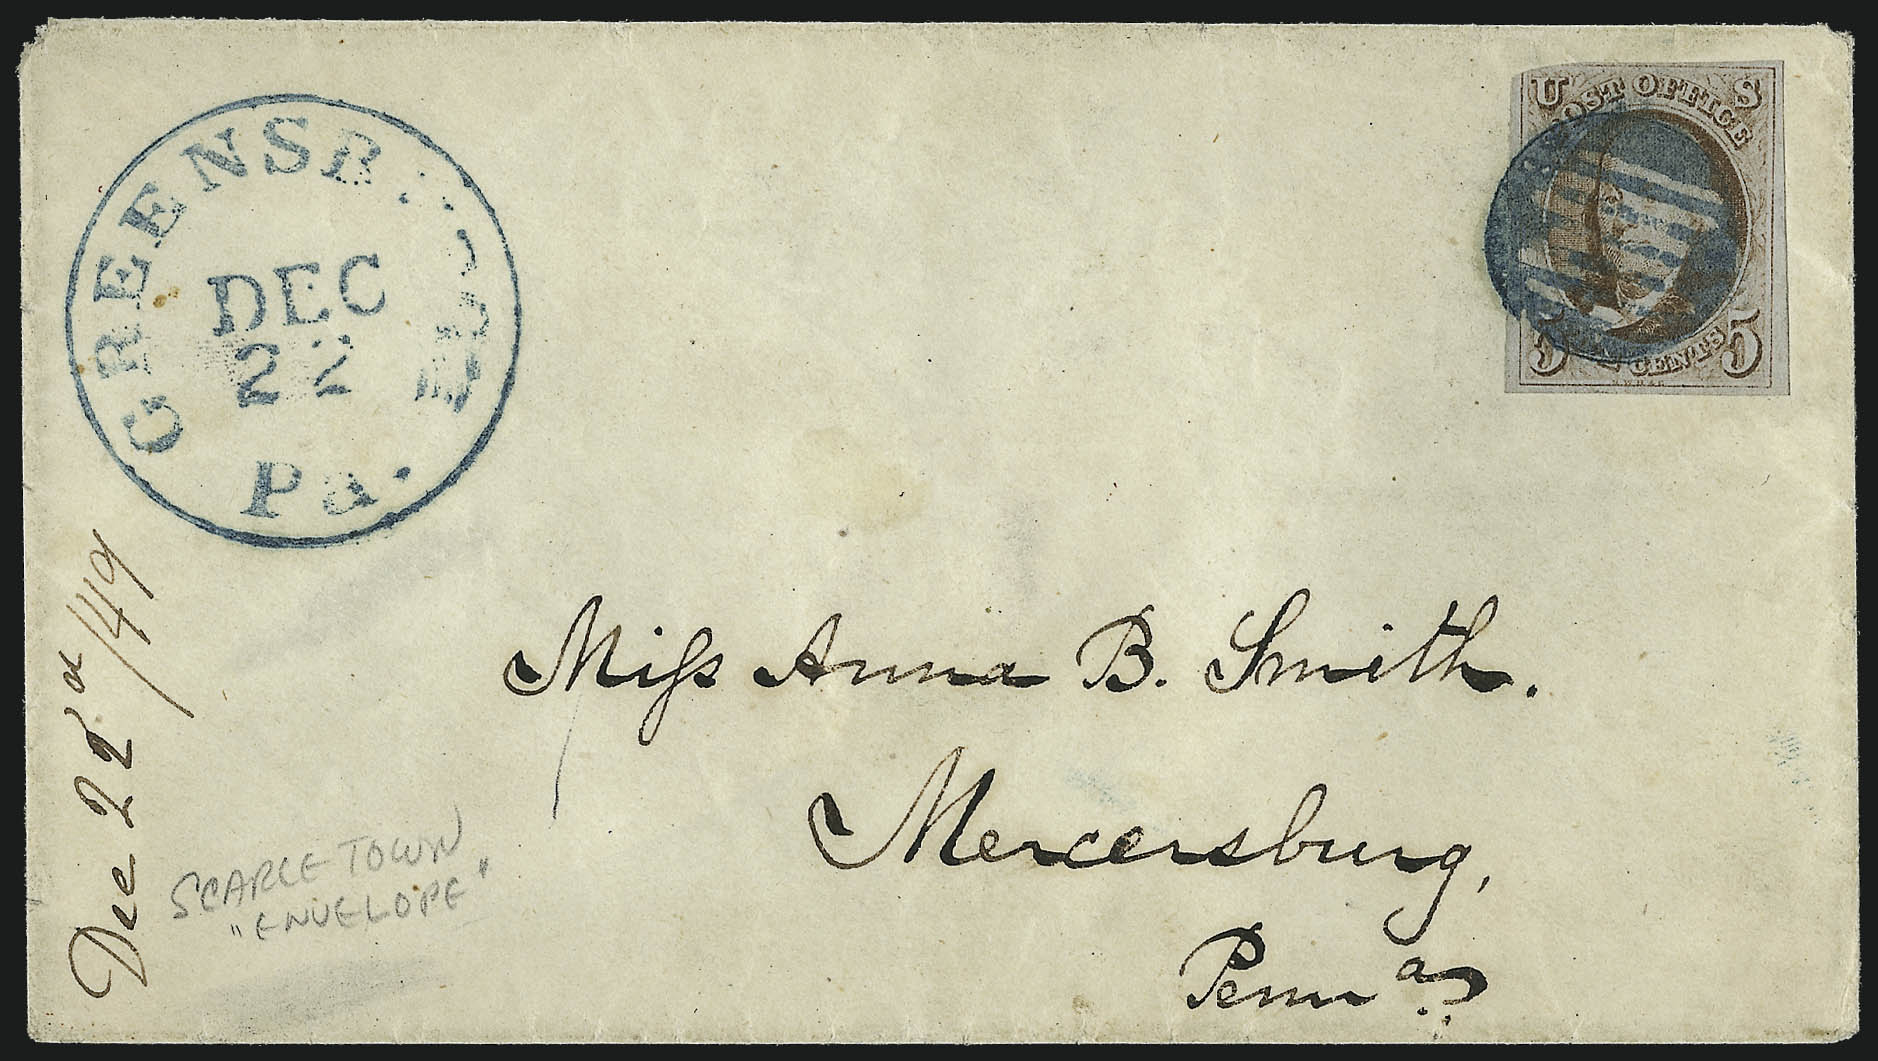 GREENSB
DEC
22
Pa.
U S
POST OFFICE
5 CENTS 5
Miss Anna B. Smith.
Mercersburg,
Penna
Dec 22d/49
SCARCE TOWN
"ENVELOPE"